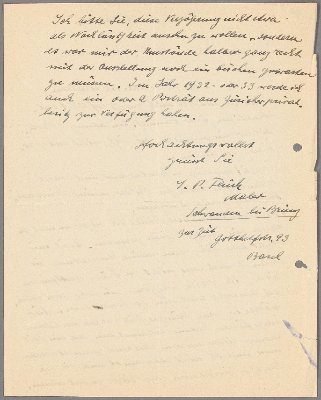 Ich bitte Sie, diese Verzögerung nicht etwa
als Nachlässigkeit ansehn zu wollen, sondern
es war mir der Umstände halber ganz recht
mit der Ausstellung noch ein bischen zuwarten
zu müssen. Im Jahr 1932 oder 33 werde ich
auch ein oder 2 Porträt aus zürcher privat
besitz zur Verfügung haben.
Hochachtungsvollst
grüsst Sie
S. P. Flück
Maler
Schwanden bei Brienz
zur Zeit
93
Basel